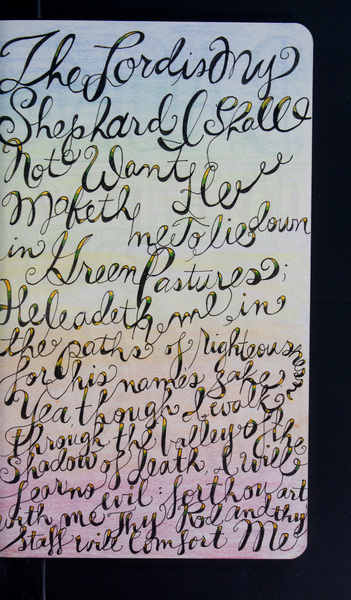 The Lord is My
Shephard I Shall
Not Want He
Maketh
me To lie down
in Green Pastures;
He leadeth me in
the paths of righteousness
for his names sake
Yea, though I walk
through the Valley of the
Shadow of death, I will
fear no evil: for thou art
with me Thy Rod and thy
Staff will Comfort Me